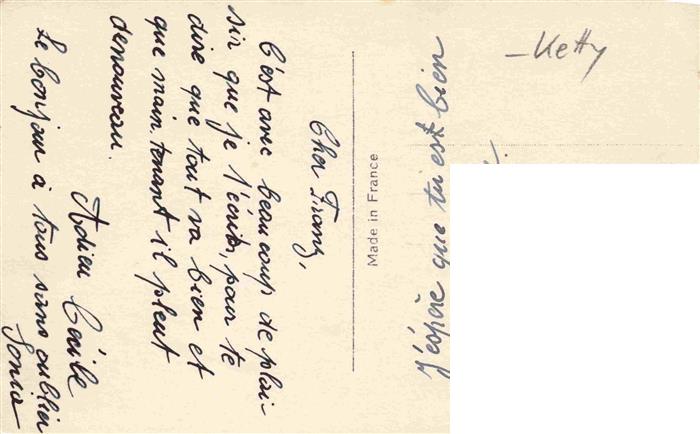 Cher Franz,
C'est avec beaucoup de plai-
sir que je t'écris, pour te
dire que tout va bien et
que main.tenant il pleut
denouveau.
Adieu Cécile
Le bonjour à tous sans oublier
Sonia
Made in France
J'espère que tu est bien
-Ketty